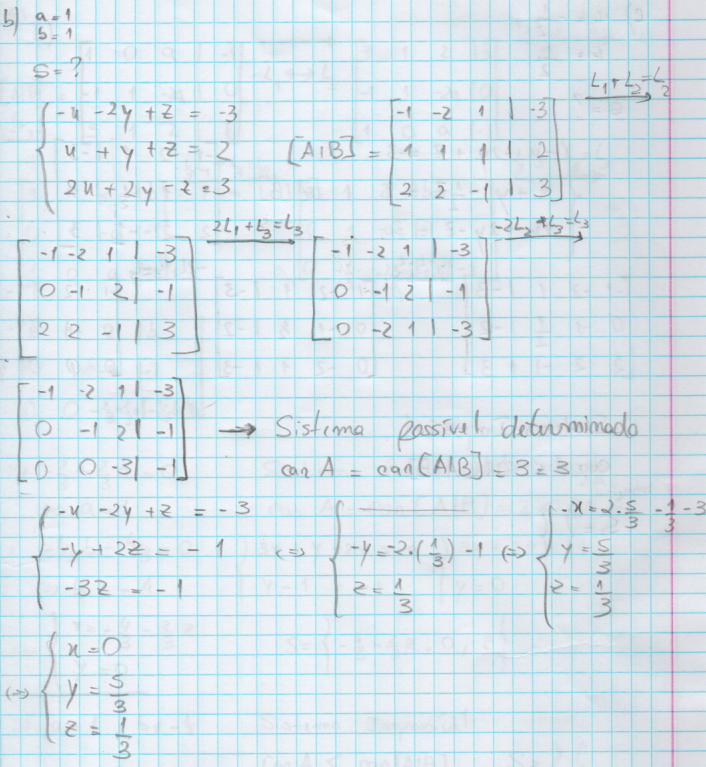 b) a=1
b=1
S=?
-x -2y +z = -3
x + y + z = 2
2x + 2y - z = 3
[A|B] =
-1 -2 1 | -3
1 1 1 | 2
2 2 -1 | 3
L₁+L₂=L₂
-1 -2 1 | -3
0 -1 2 | -1
2 2 -1 | 3
2L₁+L₃=L₃
-1 -2 1 | -3
0 -1 2 | -1
0 -2 1 | -3
-2L₂+L₃=L₃
-1 -2 1 | -3
0 -1 2 | -1
0 0 -3 | -1
→ Sistema possível determinado
car A = car[A|B] = 3 = 3
-x -2y +z = -3
-y + 2z = -1
-3z = -1
⇔
-y = -2·(1/3) -1
z = 1/3
⇔
-x = 2·5/3 - 1/3 - 3
y = 5/3
z = 1/3
⇔
x = 0
y = 5/3
z = 1/3